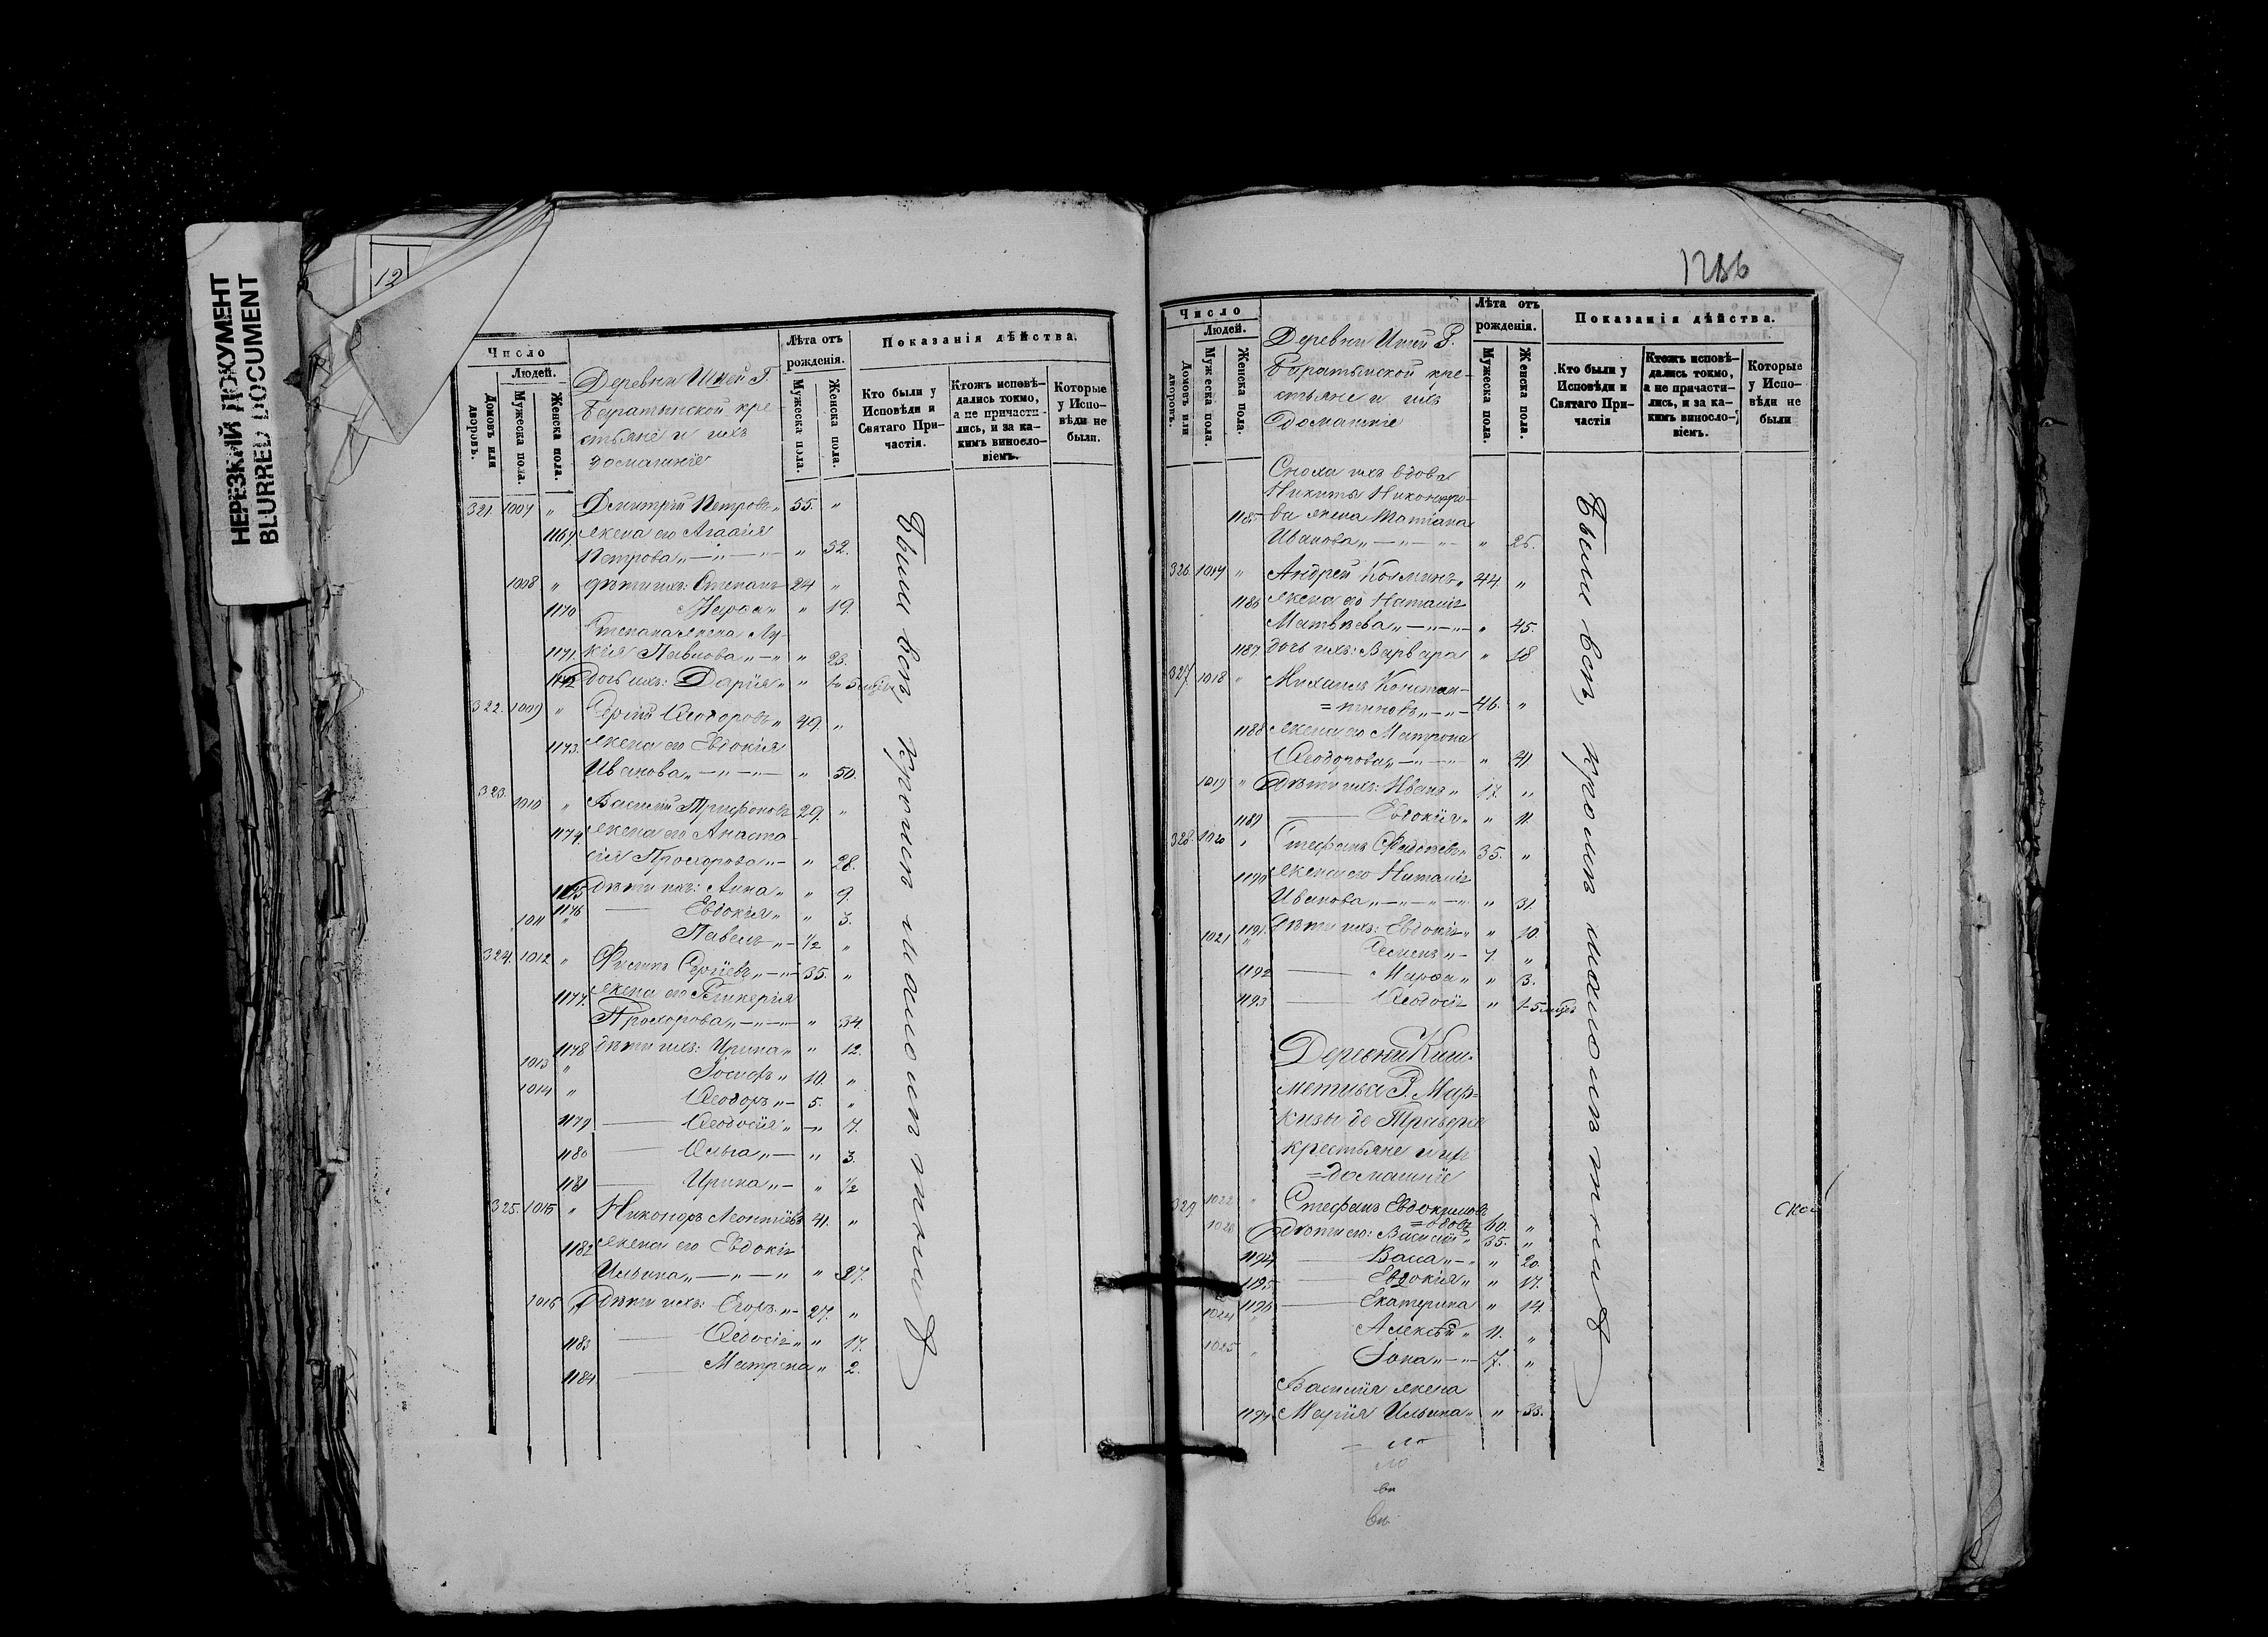 НЕРЕЗКИЙ ДОКУМЕНТ
BLURRED DOCUMENT
12
Число
Людей.
Домовъ или дворовъ.
Мужеска пола.
Женска пола.
Деревни Г.
Баратынской кре-
стьяне и ихъ
домашніе
Лѣта отъ рожденія.
Мужеска пола.
Женска пола.
Показанія дѣйства.
Кто были у Исповѣди и Святаго Причастія.
Ктожъ исповѣдались токмо, а не причастились, и за какимъ винословіемъ.
Которые у Исповѣди не были.
321. 1007 " Дмитрій Петровъ " 55. "
1169. жена его Агаѳія
Петрова " — " — " " 52.
1008 " дѣти ихъ: Степанъ 24 "
1170 Марѳа " " 19.
Степана жена Лу-
1171. кія Павлова " — " " 23.
1172 дочь ихъ: Дарія " " 1 5 мѣс
322. 1009 " Сергій Ѳеодоровъ " 49. "
1173. жена его Евдокія
Иванова " — " — " — " 50.
323. 1010 " Василій Трифоновъ 29. "
1174. жена его Анаста-
сія Прохорова " — " 28.
1175 дѣти ихъ: Анна " " 9.
1176 — Евдокія " " 3.
1011 " Павелъ " — 1/2 "
324. 1012 " Сергіевъ " — " 35. "
1177. жена его Гликерія
Прохорова " — " — " " 34.
1178 дѣти ихъ: Ирина " " 12.
1013 " Іосифъ " 10. "
1014 " Ѳеодоръ " — 5. "
1179 — Ѳеодосія " — " 7.
1180 — Ольга " — " 3.
1181 — Ирина " — " 1/2
325. 1015 " Никоноръ Леонтіевъ 41. "
1182 жена его Евдокія
Ильина " — " — " " 27.
1016 " Дѣти ихъ: Егоръ " — 27. "
1183 — Ѳедосія " " 17.
1184 — Матрена " 2.
Были всѣ, кромѣ малолѣтнихъ
1286
Число
Людей.
Домовъ или дворовъ.
Мужеска пола.
Женска пола.
Деревни Г.
Баратынской кре-
стьяне и ихъ
домашніе
Лѣта отъ рожденія.
Мужеска пола.
Женска пола.
Показанія дѣйства.
Кто были у Исповѣди и Святаго Причастія
Ктожъ исповѣдались токмо, а не причастились, и за какимъ винословіемъ.
Которые у Исповѣди не были
Сноха ихъ вдова
Никиты Никоноро-
1185 ва жена Татіана
Иванова " — " — " — " 25.
326. 1017 " Андрей Козминъ " 44. "
1186 жена его Наталія
Матвѣева " — " — " — " 45.
1187. дочь ихъ: Варвара " 18
327. 1018 " Михаилъ Констан-
=тиновъ " — " — 46. "
1188 жена его Матрона
Ѳеодорова " — " — " — " 41
1019 " Дѣти ихъ: Иванъ " 17. "
1189 — Евдокія " " 11.
328. 1020 " Стефанъ Фаддѣевъ " 35. "
1190 жена его Наталія
Иванова " — " — " — " " 31.
1191. Дѣти ихъ: Евдокія " " 10.
1021 " Семенъ " — 7. "
1192 — Марѳа " " 3.
1193 — Ѳеодосія " 1 5 мѣс
Деревни
Г. Мар-
кизы де Траверсе
крестьяне и ихъ
=домашніе
329 1022 " Стефанъ Евдокимовъ
=вдовъ 60. "
1023 Дѣти его: Василій " 35. "
1194 — Васса " — " " 20.
1195 — Евдокія " " 17.
1196 — Екатерина " 14.
1024 " Алексѣй " 11. "
1025 " Іона " — " — 7. "
Василія жена
1197 Марія Ильина " " 33.
Были всѣ, кромѣ малолѣтнихъ